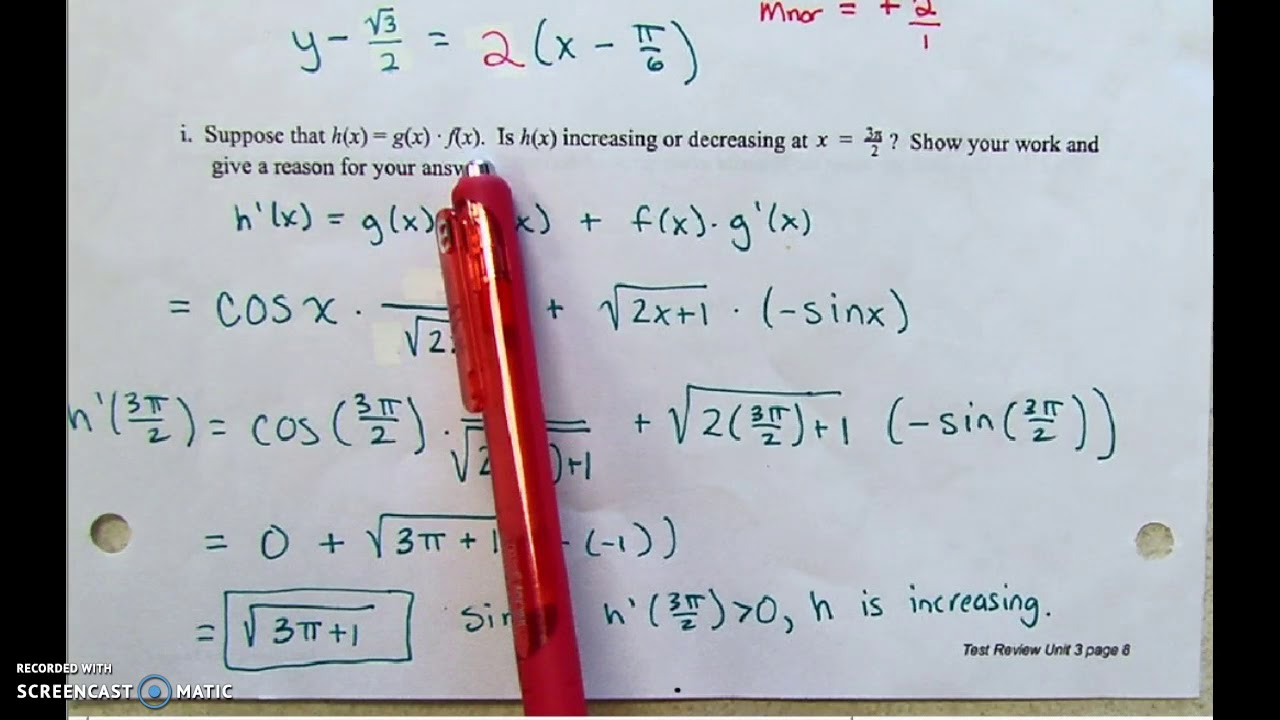 y - √3/2 = 2(x - π/6)
Mnor = + 2/1
i. Suppose that h(x) = g(x) · f(x). Is h(x) increasing or decreasing at x = 3π/2 ? Show your work and
give a reason for your
h'(x) = g(x) x) + f(x) · g'(x)
= cos x · /√2 + √2x+1 · (-sinx)
h'(3π/2) = cos(3π/2) · /√2 )+1 + √2(3π/2)+1 (-sin(3π/2))
= 0 + √3π + 1 - (-1))
= √3π+1 h'(3π/2) >0, h is increasing.
Test Review Unit 3 page 8
RECORDED WITH
SCREENCAST MATIC